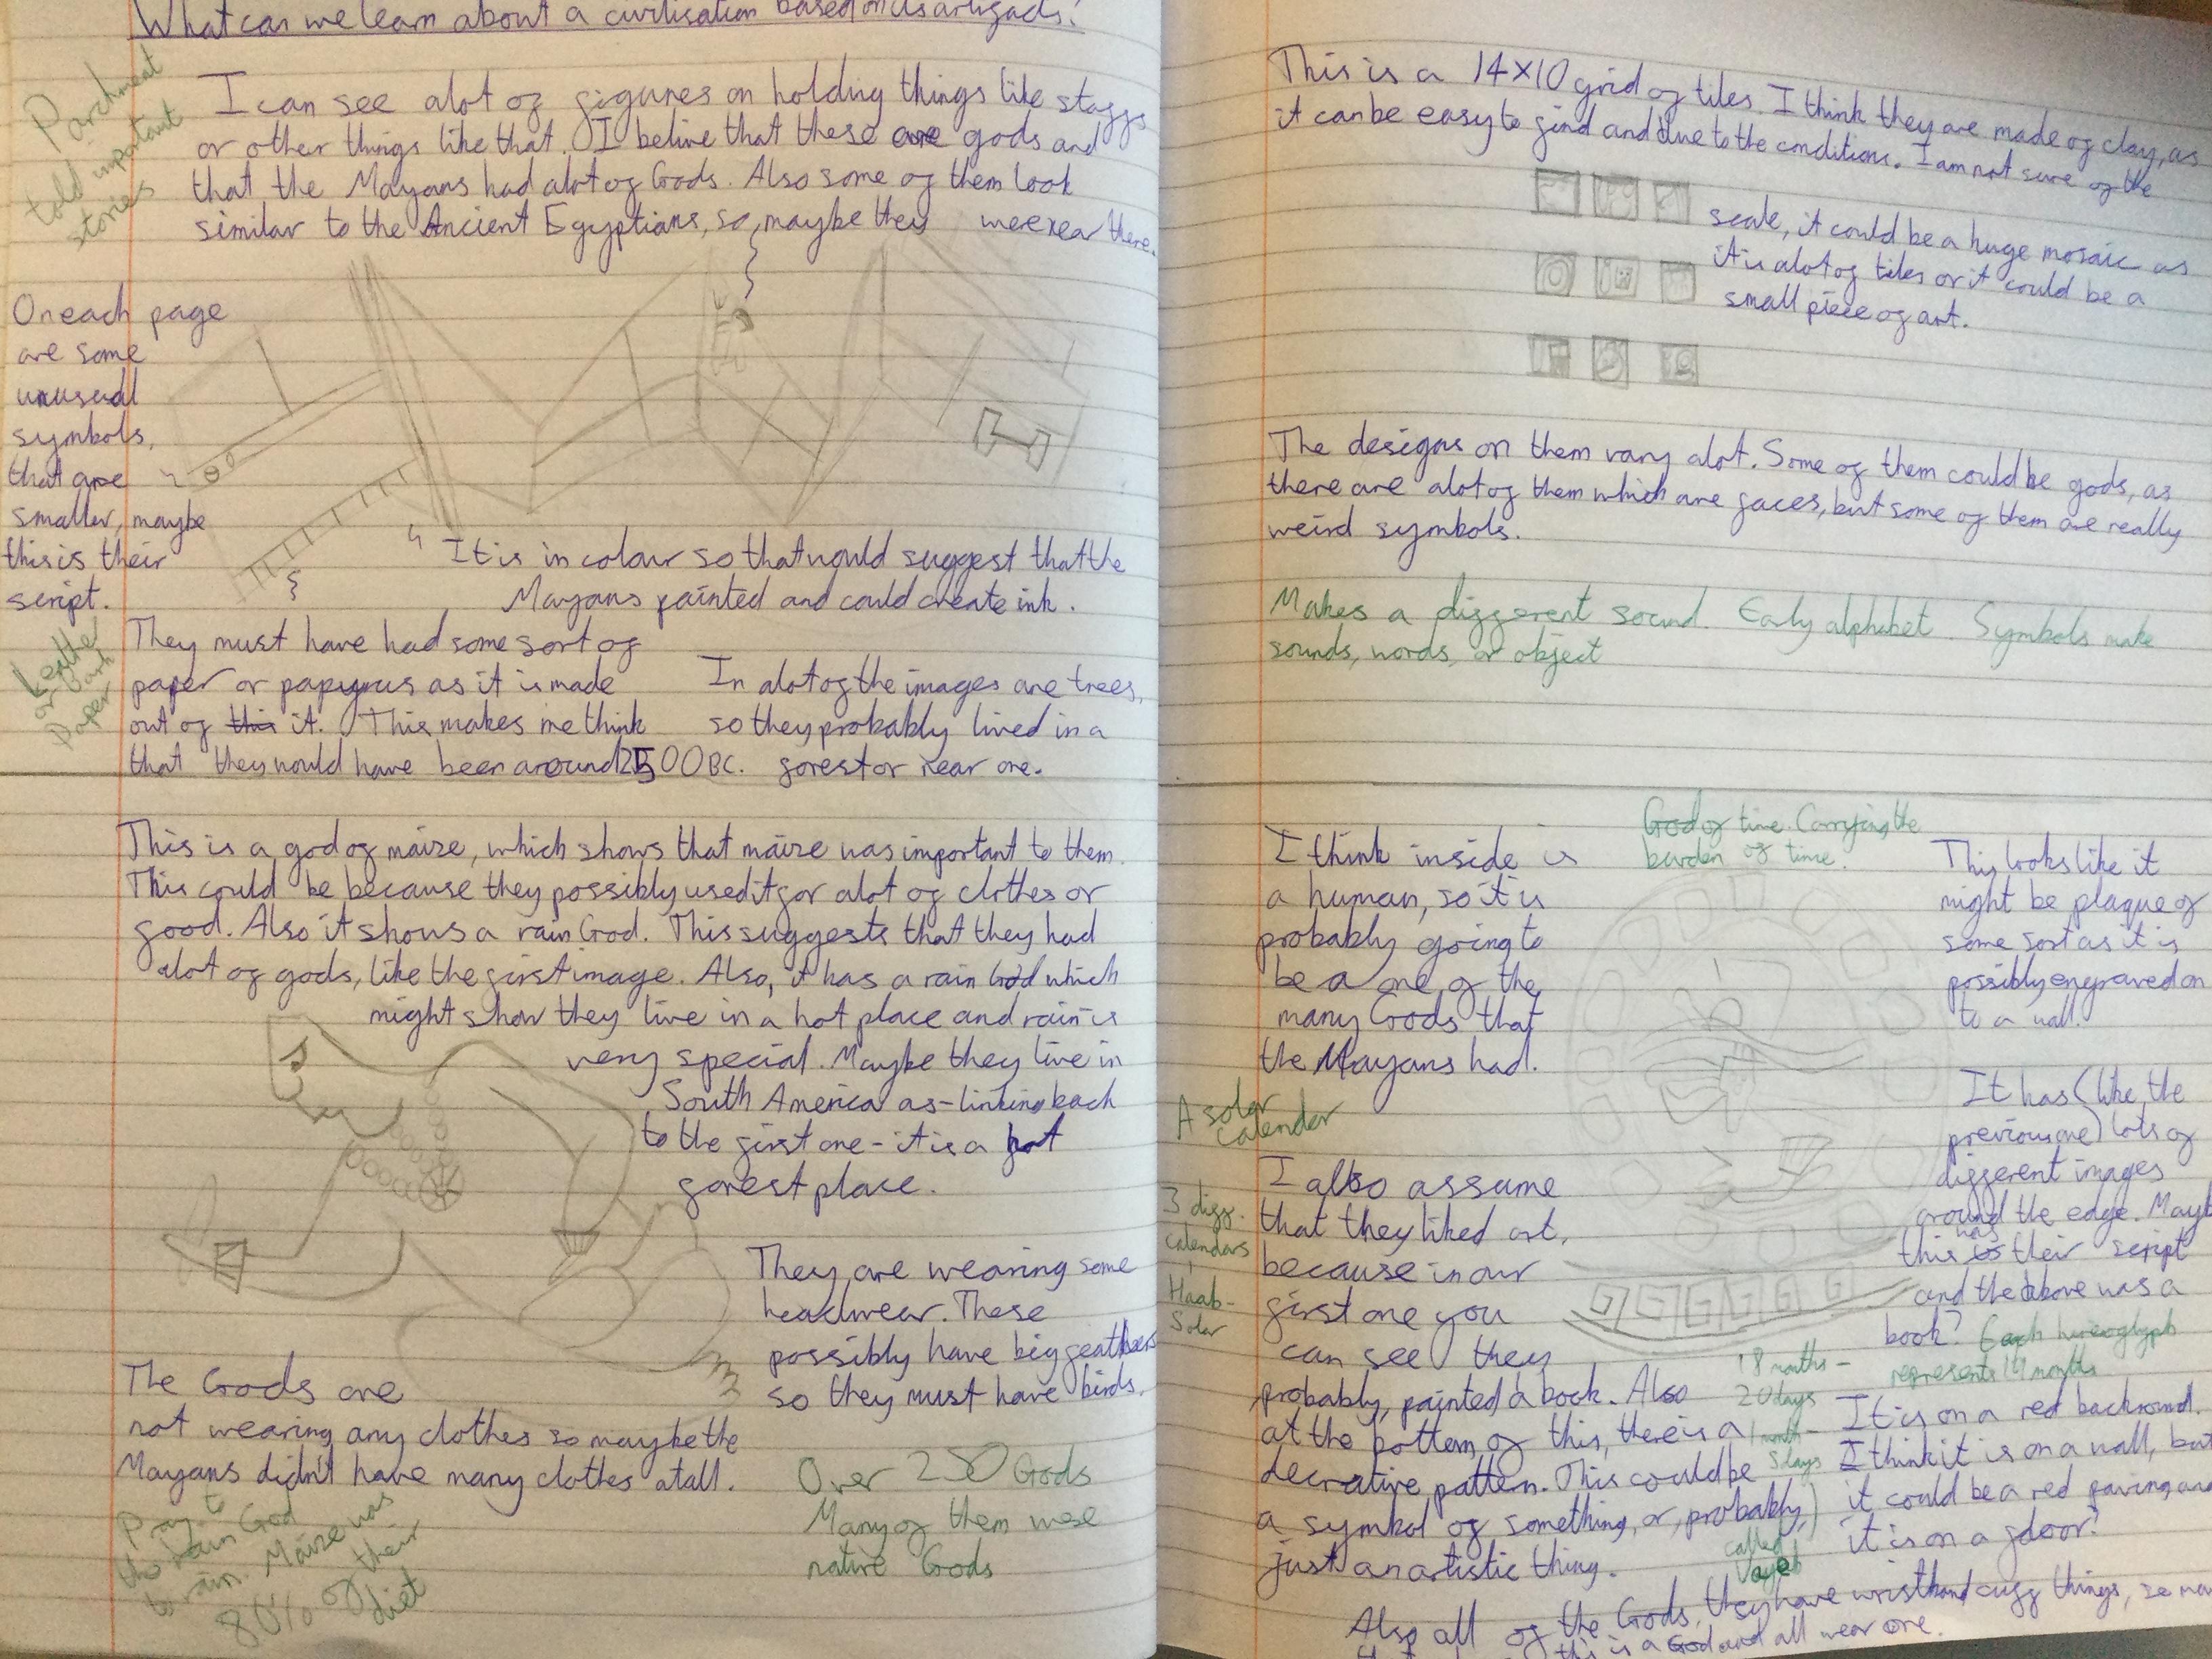 What can we learn about a civilisation based on its artifacts?
Parchment
told important
stories
I can see alot of figures on holding things like staffs
or other things like that. I belive that these are gods and
that the Mayans had alot of Gods. Also some of them look
similar to the Ancient Egyptians, so, maybe they were near there.
On each page
are some
unusual
symbols,
that are
smaller, maybe
this is their
script.
It is in colour so that would suggest that the
Mayans painted and could create ink.
Leather
or bark
Paper
They must have had some sort of
paper or papyrus as it is made
out of this it. This makes me think
that they would have been around 2500 BC.
In alot of the images are trees,
so they probably lived in a
forest or near one.
This is a god of maize, which shows that maize was important to them.
This could be because they possibly used it for alot of clothes or
food. Also it shows a rain God. This suggests that they had
alot of gods, like the first image. Also, it has a rain God which
might show they live in a hot place and rain is
very special. Maybe they live in
South America as - linking back
to the first one - it is a hot
forest place.
They are wearing some
headwear. These
possibly have big feathers
so they must have birds.
The Gods are
not wearing any clothes so maybe the
Mayans didn't have many clothes at all.
Pray to
the rain God
to rain. Maize was
80% of their
diet
Over 250 Gods
Many of them were
native Gods
This is a 14x10 grid of tiles. I think they are made of clay, as
it can be easy to find and due to the conditions. I am not sure of the
scale, it could be a huge mosaic as
it is alot of tiles or it could be a
small piece of art.
The designs on them vary alot. Some of them could be gods, as
there are alot of them which are faces, but some of them are really
weird symbols.
Makes a different sound. Early alphabet. Symbols make
sounds, words, or object
I think inside is
a human, so it is
probably going to
be a one of the
many Gods that
the Mayans had.
God of time. Carrying the
burden of time.
This looks like it
might be plaque of
some sort as it is
possibly engraved on
to a wall.
A solar
calendar
3 diff.
calendars
Haab -
Solar
I also assume
that they liked art,
because in our
first one you
can see they
probably, painted a book. Also
at the bottem of this, there is a
decrative pattern. This could be
a symbol of something, or, probably,
just an artistic thing.
It has (like the
previous one) lots of
different images
around the edge. Mayb
this is was their script
and the above was a
book? Each hieroglyph
represents 19 months
18 months -
20 days
1 month -
5 days
called
Wayeb
It is on a red backround.
I think it is on a wall, but
it could be a red paving and
it is on a floor?
Also all of the Gods, they have wristband cuff things, so
this is a God and all wear one.